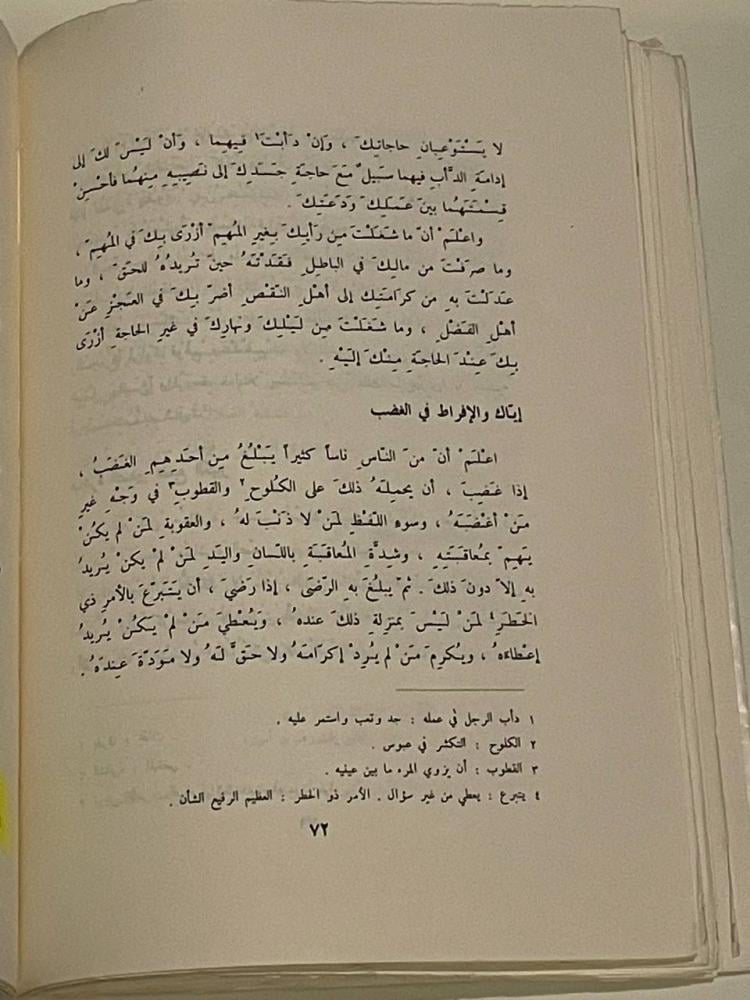 لا يَسْتَوْعِبانِ حاجاتِكَ ، وَإنْ دَأَبْتَ١ فيهِما ، وَأنْ لَيْسَ لكَ إلى
إدامَةِ الدّأبِ فيهما سَبيلٌ مَعَ حاجَةِ جَسَدِكَ إلى نَصيبِهِ مِنهُما فأحْسِنْ
قِسْمَتَهُما بينَ عَمَلِكَ وَدَعَتِكَ .
واعْلَمْ أنّ ما شَغَلْتَ مِن رَأيِكَ بِغيرِ المُهِمّ أزْرَى بِكَ في المُهِمّ ،
وما صرَفْتَ من مالِكَ في الباطِلِ فَقَدْتَهُ حينَ تُريدُهُ للحَقّ ، وما
عَدَلْتَ بهِ من كرَامَتِكَ إلى أهْلِ النّقْصِ أضَرّ بِكَ في العَجْزِ عَنْ
أهْلِ الفَضْلِ ، وما شَغَلْتَ مِن لَيْلِكَ ونَهارِكَ في غيرِ الحاجةِ أزْرَى
بِكَ عِنْدَ الحاجَةِ مِنْكَ إلَيْهِ .
إيّاك والإفراط في الغضب
اعْلَمْ أنّ مِنَ النّاسِ ناساً كثيراً يَبْلُغُ مِن أحَدِهِمِ الغَضَبُ ،
إذا غَضِبَ ، أن يحمِلَهُ ذلكَ على الكُلوحِ٢ والقطوبِ٣ في وَجْهِ غيرِ
مَنْ أغْضَبَهُ ، وسوءِ اللّفْظِ لمَنْ لا ذَنْبَ لهُ ، والعقوبةِ لمَنْ لم يكُنْ
يَهِمّ بمُعاقَبَتِهِ ، وشِدّةِ المُعاقَبَةِ باللّسانِ واليَدِ لمَنْ لمْ يكنْ يُريدُ
بهِ إلاّ دونَ ذلكَ . ثمّ يبلُغُ بهِ الرّضَى ، إذا رَضيَ ، أن يَتَبَرّعَ بالأمرِ ذي
الخَطَرِ٤ لمَنْ لَيْسَ بمَنزِلةِ ذلكَ عندهُ ، وَيُعْطيَ مَنْ لمْ يَكُنْ يُريدُ
إعْطاءَهُ ، ويُكرِمَ مَنْ لم يُرِدْ إكرامَهُ ولا حقَّ لَهُ ولا مَوَدّةَ عِندَهُ .
١ دأب الرجل في عمله : جد وتعب واستمر عليه .
٢ الكلوح : التكشر في عبوس .
٣ القطوب : أن يزوي المرء ما بين عينيه .
٤ يتبرع : يعطي من غير سؤال . الأمر ذو الخطر : العظيم الرفيع الشأن .
٧٢